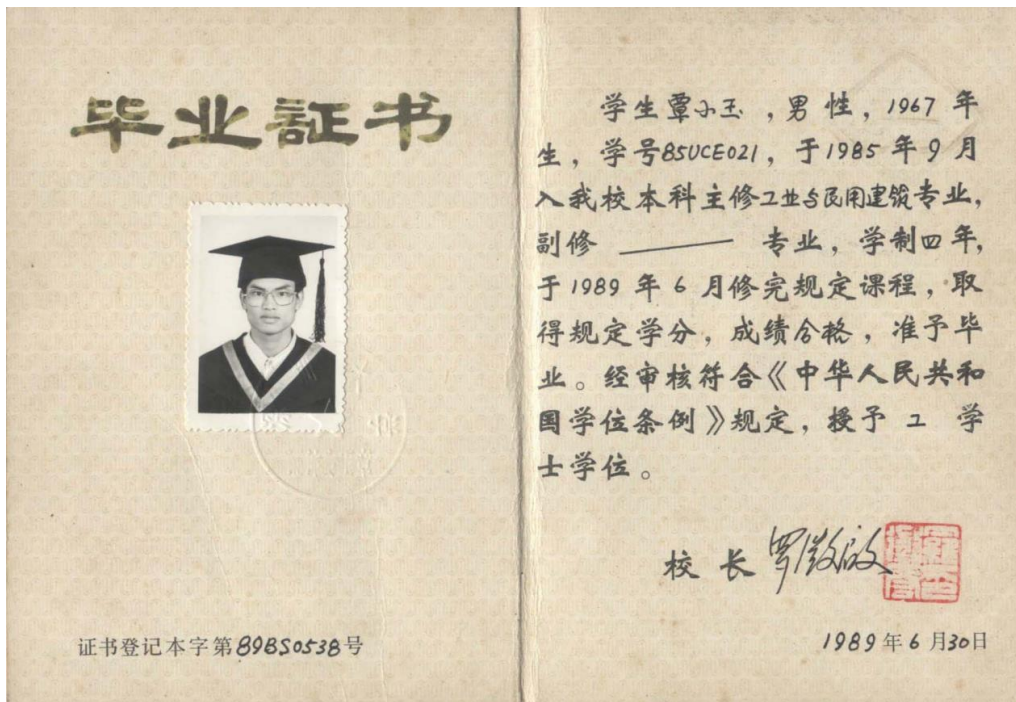 毕业証书
证书登记本字第89BS0538号
学生覃小玉，男性，1967年
生，学号85UCE021，于1985年9月
入我校本科主修工业与民用建筑专业，
副修 ——— 专业，学制四年，
于1989年6月修完规定课程，取
得规定学分，成绩合格，准予毕
业。经审核符合《中华人民共和
国学位条例》规定，授予 工 学
士学位。
校长 罗徵启
1989年6月30日